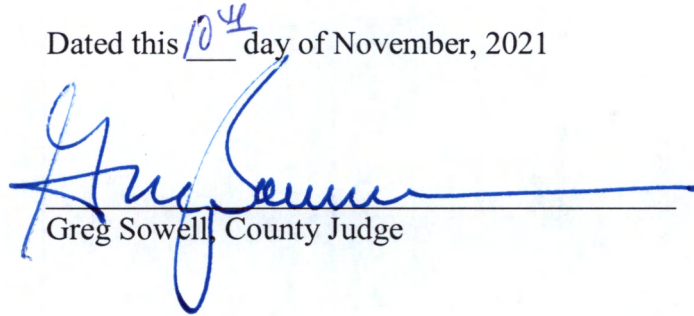 Dated this 10th day of November, 2021
Greg Sowell, County Judge